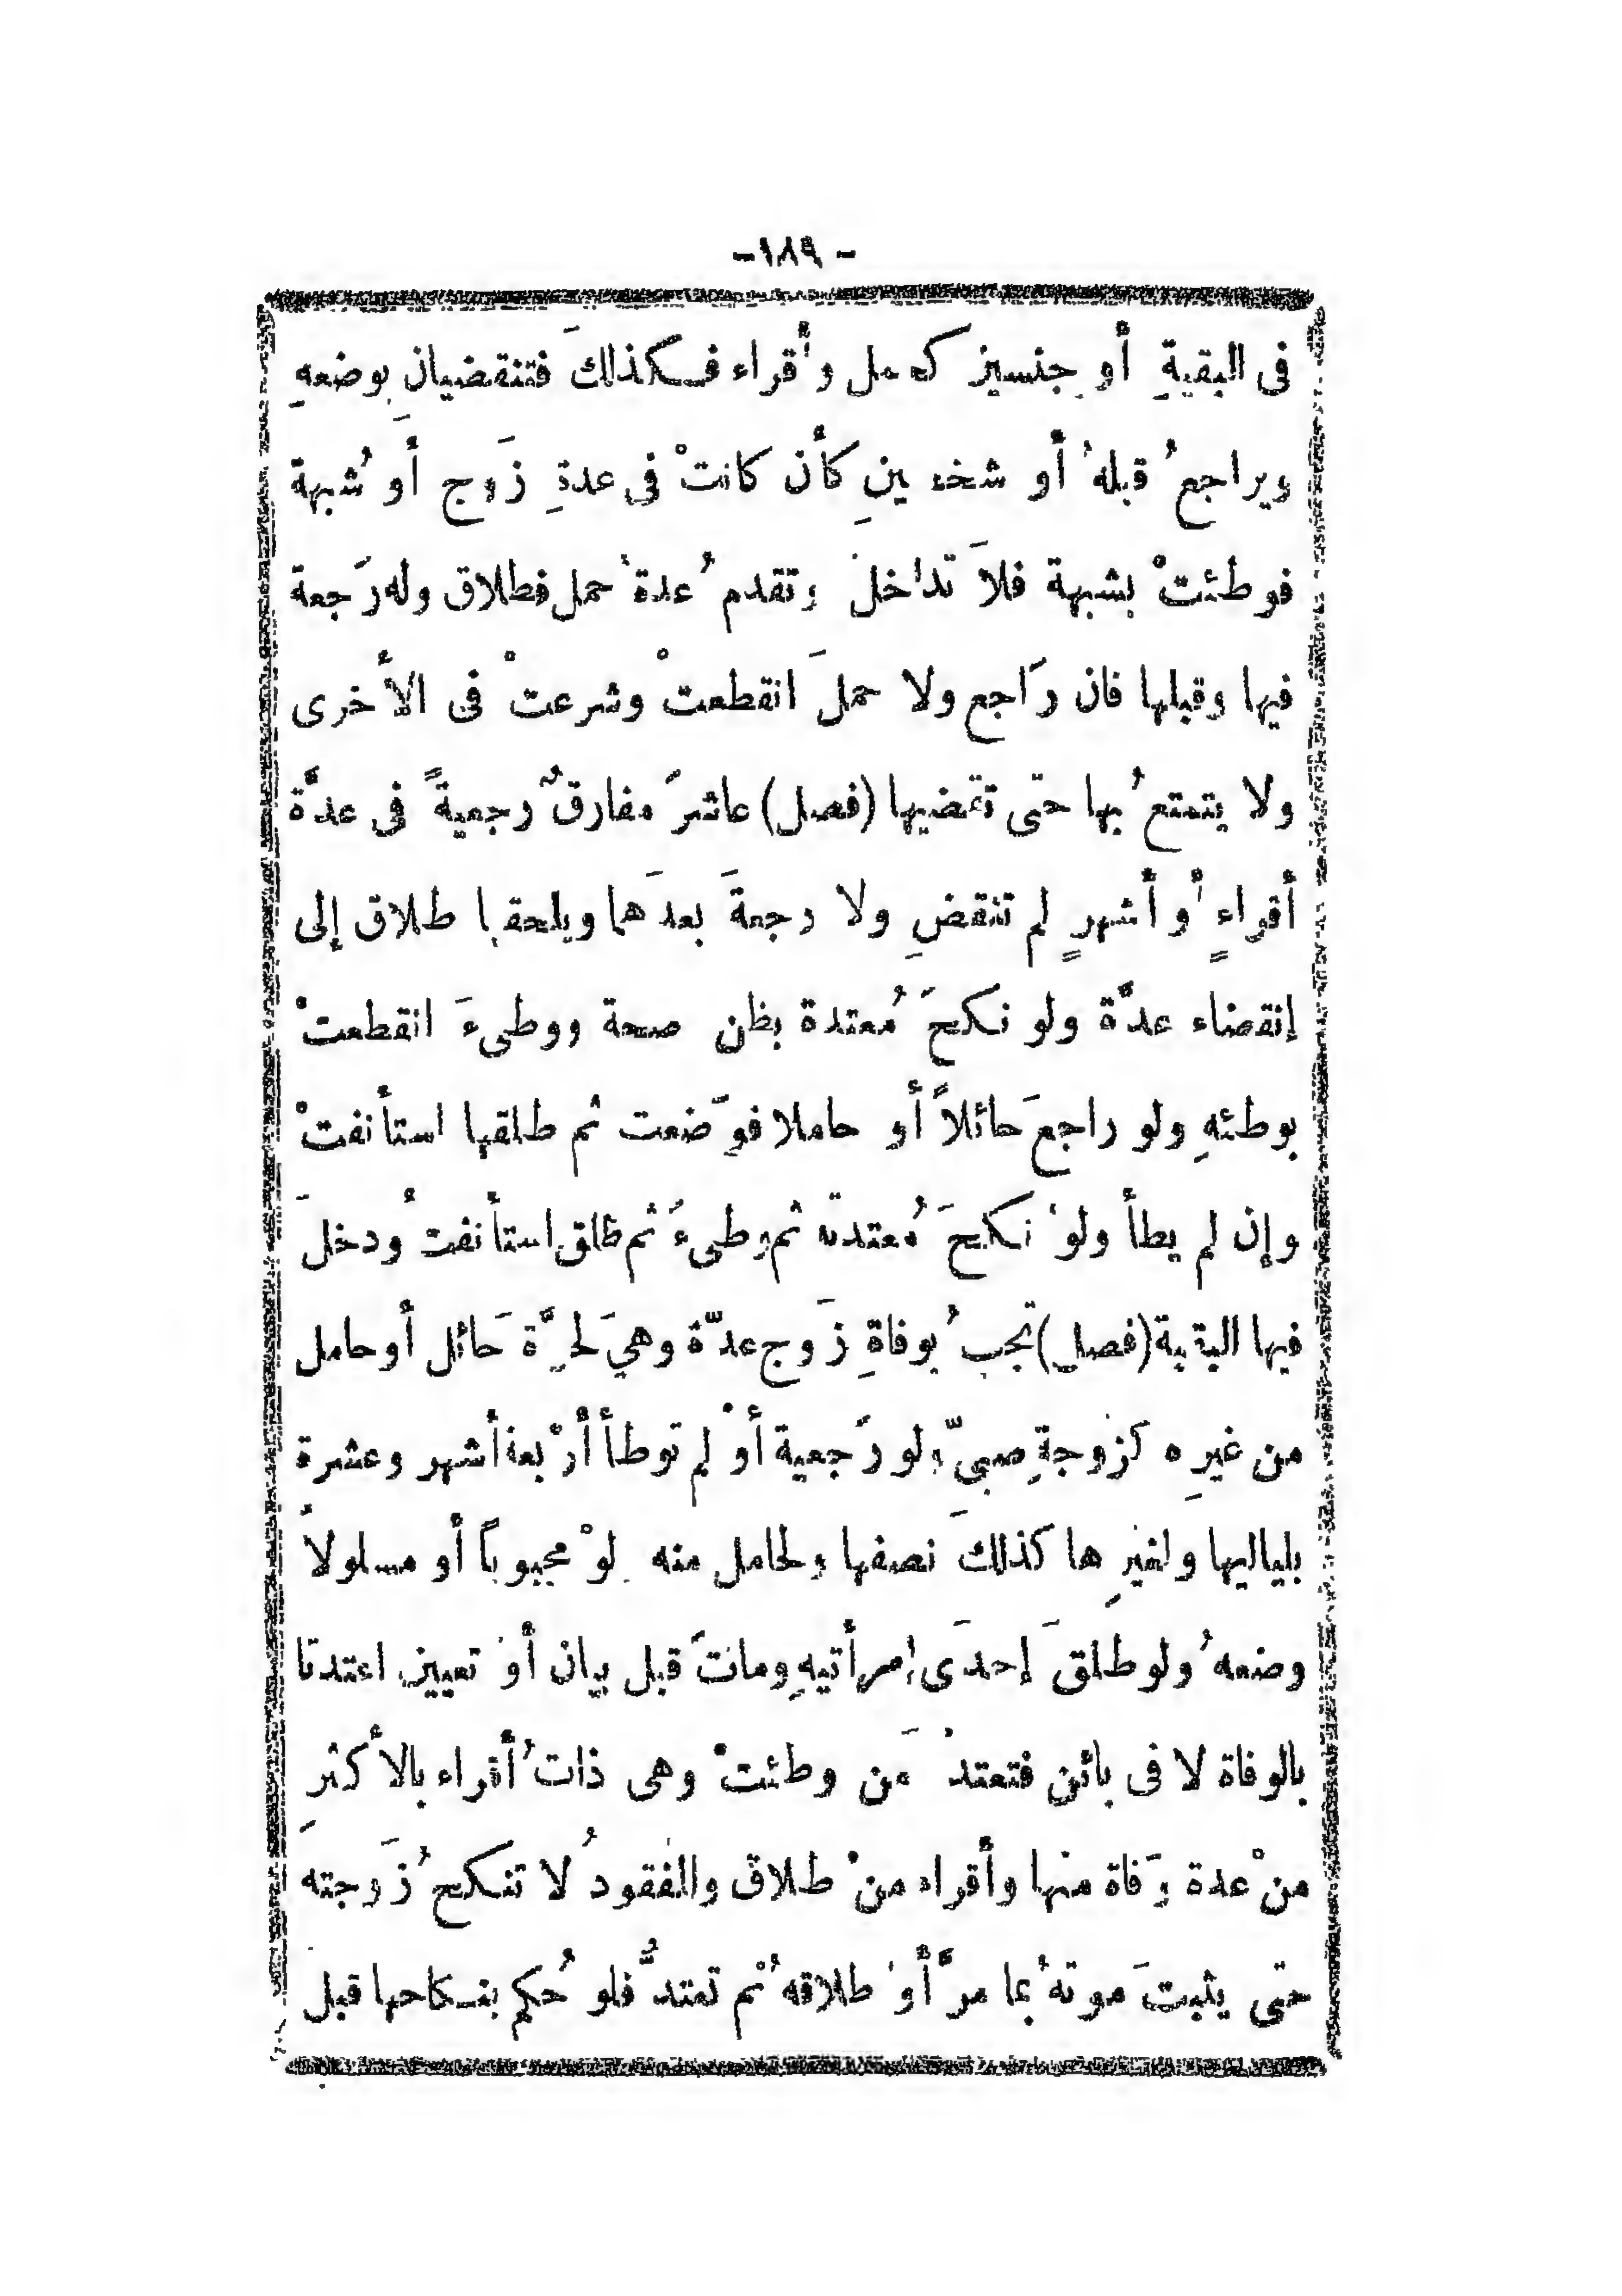 - ١٨٩ -
فى البقيةِ أو جنسين كحمل وأقراء فكذلكَ فتنقضيانِ بوضعهِ
ويراجعُ قبلهُ أو شخصينِ كأن كانتْ فى عدةِ زَوج أو شُبهة
فوطئتْ بشبهة فلاَ تداخلَ وتقدمُ عدةُ حمل فطلاق وله رَجعة
فيها وقبلها فان رَاجع ولا حملَ انقطعتْ وشرعتْ فى الأخرى
ولا يتمتعُ بها حتى تقضيها (فصل) عاشرَ مفارقٌ رجعيةً فى عدَّة
أقراءٍ أو أشهرٍ لم تنقضِ ولا رجعةَ بعدَها ويلحقها طلاق إلى
إنقضاء عدَّة ولو نكحَ مُعتدة بظن صحة ووطىءَ انقطعتْ
بوطئهِ ولو راجعَ حائلاً أو حاملا فوَضعت ثم طلقها استأنفتْ
وإن لم يطأ ولو نكحَ مُعتدته ثم وطىءَ ثم طلق استأنفتْ ودخلَ
فيها البقية (فصل) تجبُ بوفاةِ زَوج عدّة وهيَ لحرَّة حَائل أو حامل
من غيرِه كزوجةِ صبىّ ولو رَجعية أوْ لم توطأ أرْبعة أشهر وعشرة
بلياليها ولغيرِها كذلكَ نصفها ولحامل منه ولوْ مجبوباً أو مسلولاً
وضعهُ ولو طلقَ إحدَى امرأتيهِ وماتَ قبل بيان أو تعيين اعتدتا
بالوفاة لا فى بائن فتعتدُّ مَن وطئتْ وهى ذاتُ أقراء بالأكثرِ
منْ عدة وَفاة منها وأقراء منْ طلاق والمفقودُ لا تنكحُ زَوجته
حتى يثبتَ موتهُ بما مرَّ أوْ طلاقهُ ثم تعتدُّ فلو حُكم بنكاحها قبلَ